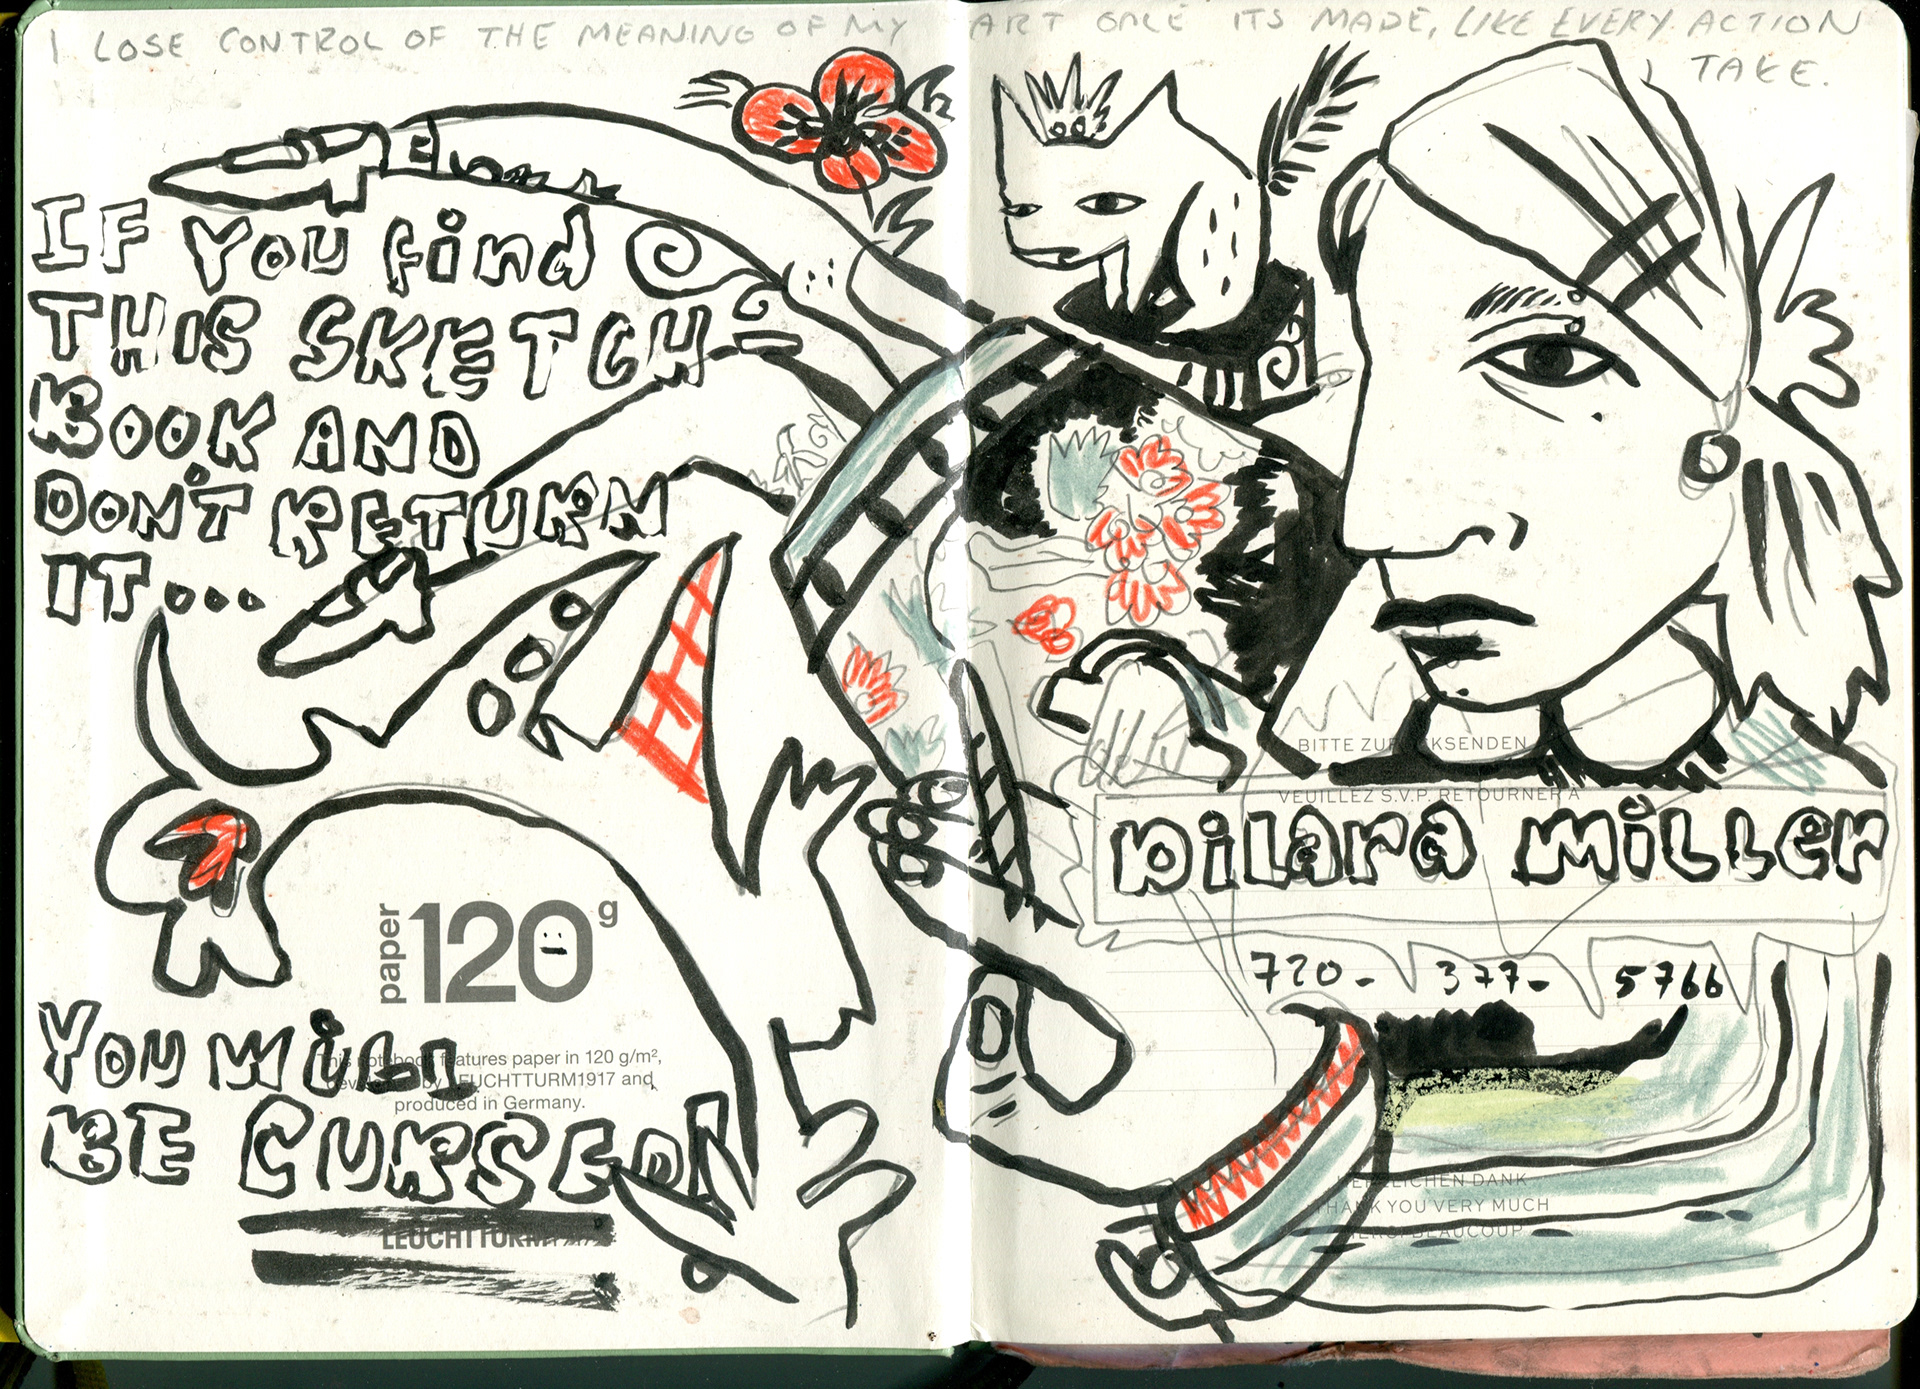 I LOSE CONTROL OF THE MEANING OF MY ART ONCE ITS MADE, LIKE EVERY ACTION
I TAKE.
IF YOU find
THIS SKETCH
BOOK AND
DON'T RETURN
IT...
paper 120g
YOU WILL
This notebook features paper in 120 g/m²,
by LEUCHTTURM1917 and
produced in Germany.
BE CURSED!
LEUCHTTURM
BITTE ZURÜCKSENDEN
VEUILLEZ S.V.P. RETOURNER À
DiLara MiLLer
720-377-5766
HERZLICHEN DANK
THANK YOU VERY MUCH
MERCI BEAUCOUP